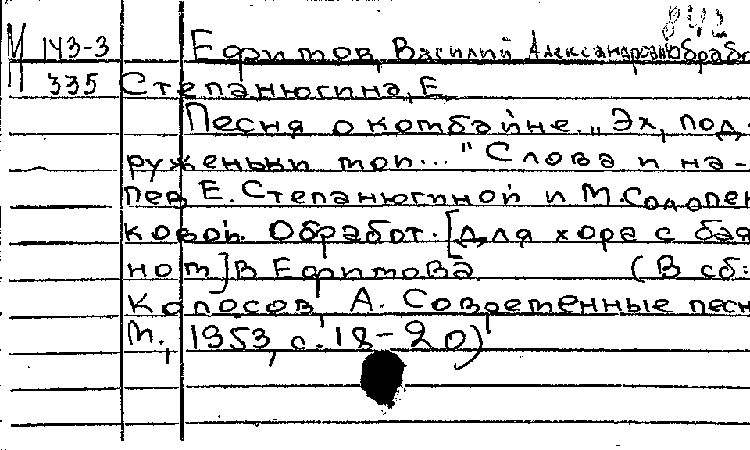 842
М 143-3 Ефимов, Василий Александрович Обраб
335 Степанюгина, Е.
Песня о комбайне. „Эх, под-
руженьки мои..." Слова и на-
пев Е. Степанюгиной и М. Содолен
ковой. Обработ. [для хора с бая
ном] В Ефимова (В сб:
Колосов, А. Современные песн
М., 1953, с. 18-20)